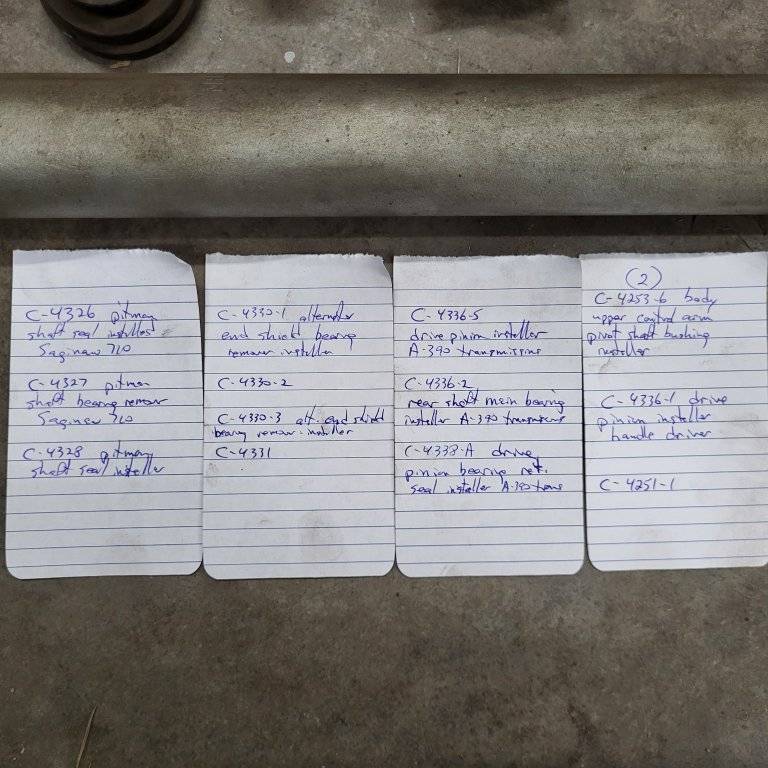 C-4326 pitman
shaft seal installer
Saginaw 710
C-4327 pitman
shaft bearing remover
Saginaw 710
C-4328 pitman
shaft seal installer
C-4330-1 alternator
end shield bearing
remover installer
C-4330-2
C-4330-3 alt. end shield
bearing remover installer
C-4331
C-4336-5
drive pinion installer
A-390 transmissions
C-4336-2
rear shaft main bearing
installer A-390 transmissions
C-4338-A drive
pinion bearing ret.
seal installer A-390 trans
(2)
C-4253-6 body
upper control arm
pivot shaft bushing
installer
C-4336-1 drive
pinion installer
handle driver
C-4251-1